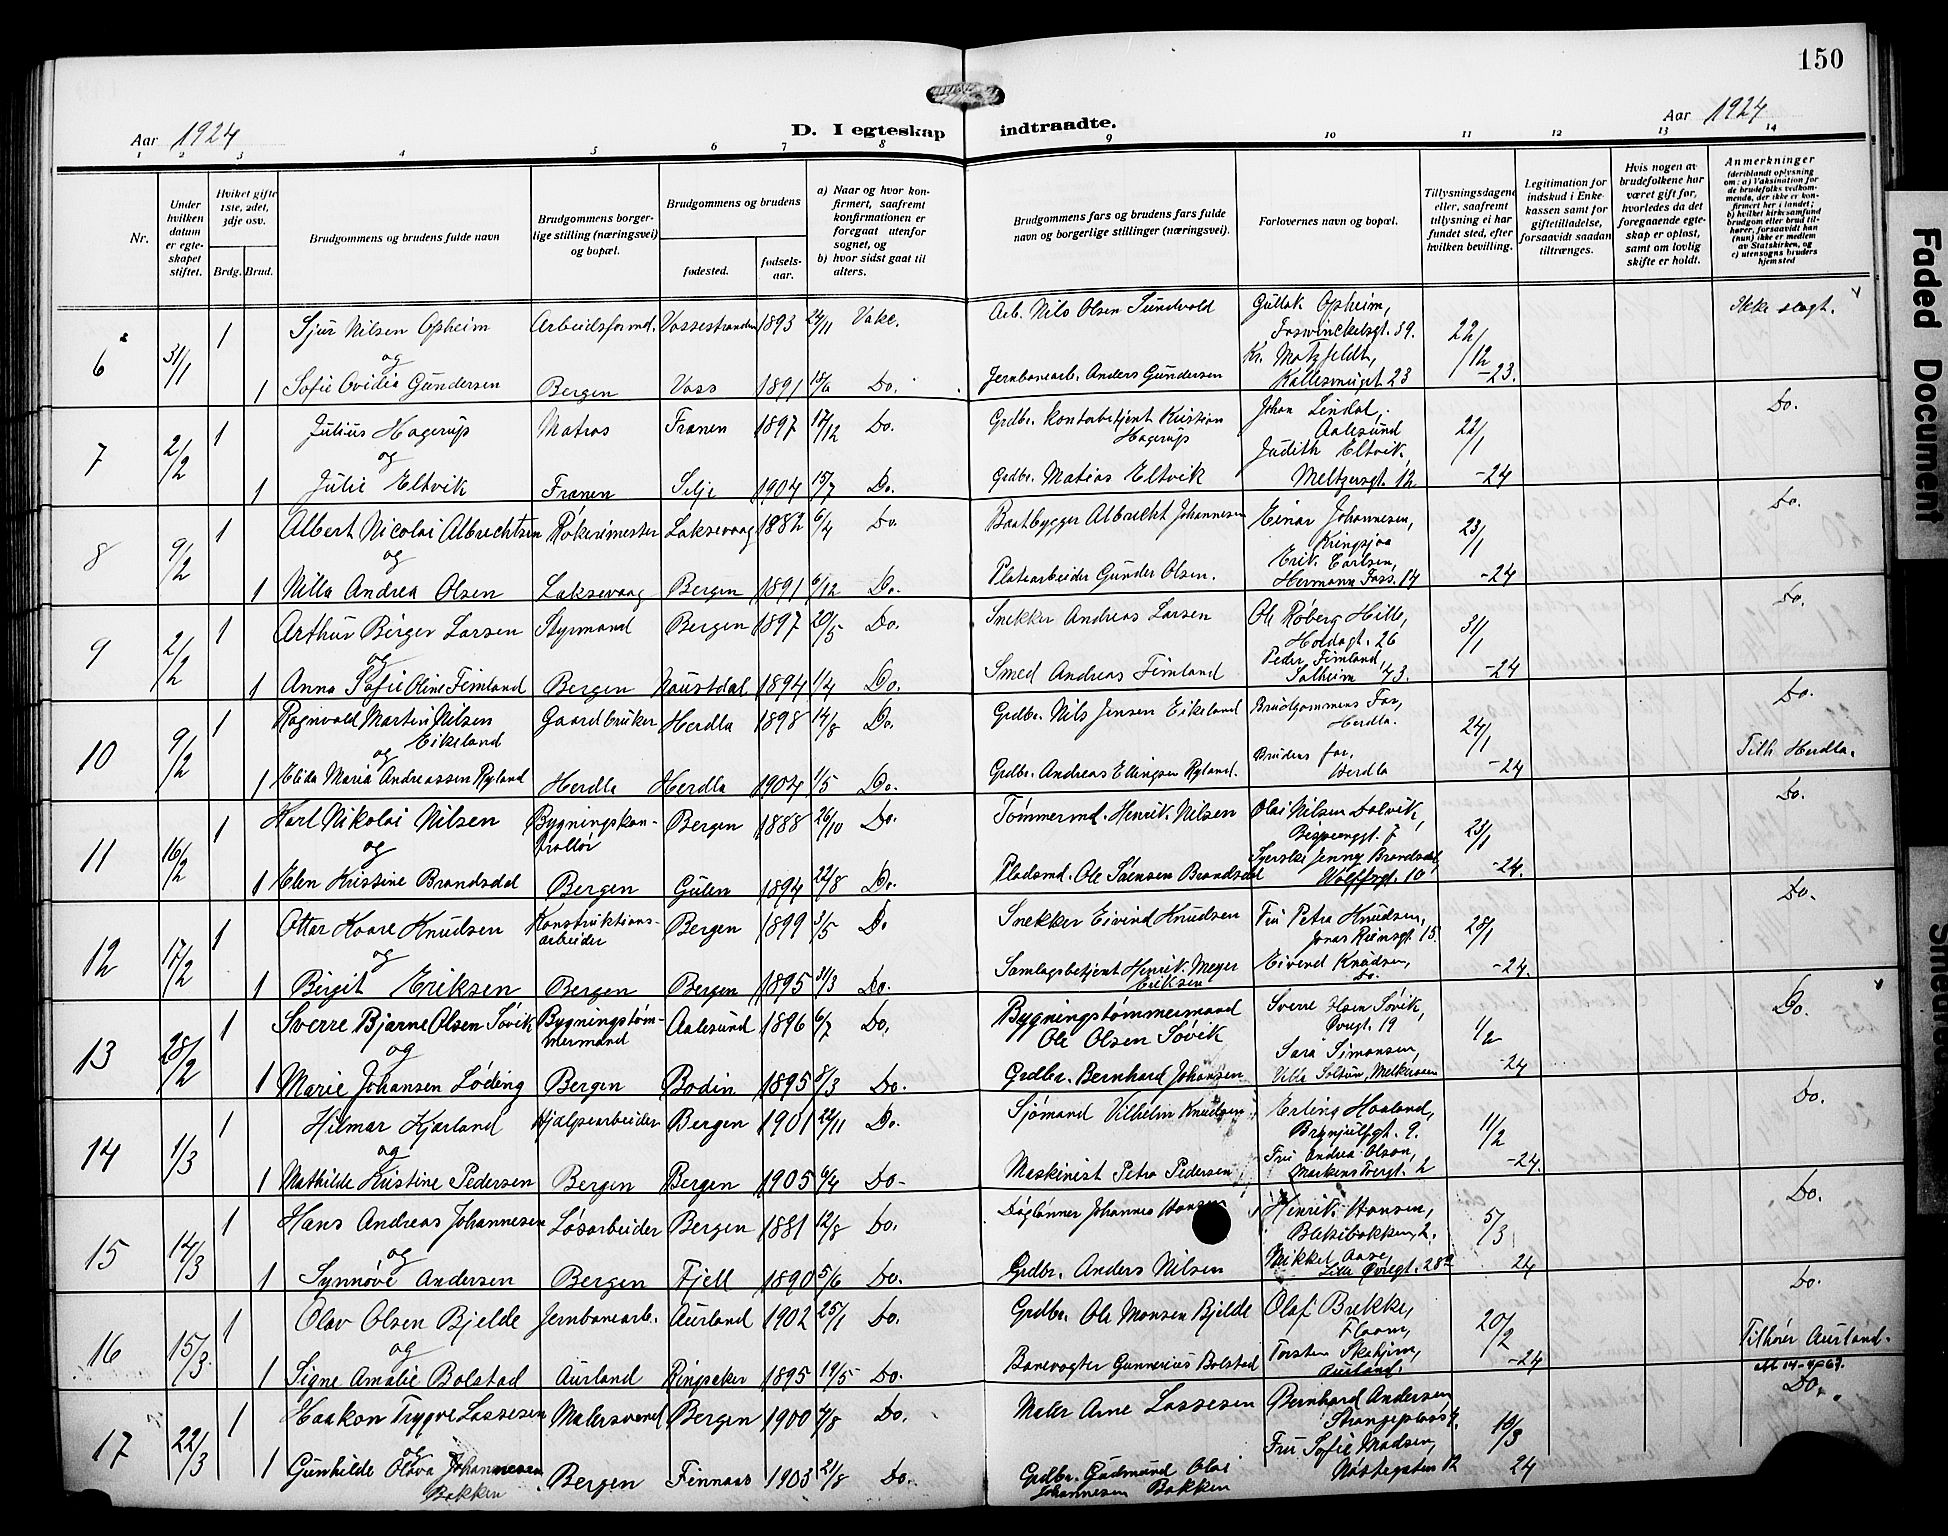 150
Aar 1924
D. I egteskap indtraadte.
Aar 1924
1 2 3 4 5 6 7 8 9 10 11 12 13 14
Nr.
Under hvilken datum er egteskapet stiftet.
Hvilket gifte 1ste, 2det, 3dje osv.
Brdg. Brud.
Brudgommens og brudens fulde navn
Brudgommens borgerlige stilling (næringsvei) og bopæl.
Brudgommens og brudens
fødested.
fødselsaar.
a) Naar og hvor konfirmert, saafremt konfirmationen er foregaat utenfor sognet, og
b) hvor sidst gaat til alters.
Brudgommens fars og brudens fars fulde navn og borgerlige stillinger (næringsvei).
Forlovernes navn og bopæl.
Tillysningsdagene eller, saafremt tillysning ei har fundet sted, efter hvilken bevilling.
Legitimation for indskud i Enkekassen samt for giftetilladelse, forsaavidt saadan tiltrænges.
Hvis nogen av brudefolkene har været gift før, hvorledes da det foregaaende egteskap er opløst, samt om lovlig skifte er holdt.
Anmerkninger (deriblandt oplysning om: a) Vaksination for de brudefolks vedkommende, der ikke er konfirmert her i landet; b) hvilket kirkesamfund brudgom eller brud tilhører, forsaavidt han (hun) ikke er medlem av Statskirken, og c) utensogns bruders hjemsted
6 31/1 1 Sjur Nilsen Opheim Arbeidsformd. Vossestranden 1893 24/11 Vake. Arb. Nils Olsen Sundvold Gullak Opheim, Ikke slegt.
og Foswinckelsgt. 39. 22/12 -23.
Kr. Motzfeldt,
1 Sofie Ovidia Gundersen Bergen Voss 1891 15/6 Do. Jernbanearb. Anders Gundersen Kallesmuget. 23
7 2/2 1 Julius Hagerup Matros Frænen 1897 17/12 Do. Grdbr. Kontorbetjent Kristian Hagerup Johan Lindal, Aalesund 22/1 -24 Do.
og Judith Eltvik,
1 Julie Eltvik Frænen Selje 1904 15/7 Do. Grdbr. Matias Eltvik Meltzersgt. 12
8 9/2 1 Albert Nicolai Albrechtsen Røkerimester Laksevaag 1882 6/4 Do. Baatbygger Albrecht Johannesen Einar Johannesen, Kringsjaa 23/1 -24 Do.
og Erik Carlsen,
1 Nilla Andrea Olsen Laksevaag Bergen 1891 6/12 Do. Platearbeider Gunder Olsen. Hermann Foss. 14
9 2/2 1 Arthur Birger Larsen Styrmand Bergen 1897 20/5 Do. Snekker Andreas Larsen Ole Røberg Hille, Hordagt. 26 31/1 -24 Do.
og Peder Fimland,
1 Anna Sofie Oline Fimland Bergen Naustdal 1894 1/4 Do. Smed Andreas Fimland Solheim 43.
10 9/2 1 Ragnvald Martin Nilsen Eikeland Gaardbruker Herdla 1898 14/8 Do. Grdbr. Nils Jensen Eikeland Brudgommens Far, Herdla. 24/1 -24 Do.
og Brudens far, Tilh. Herdla.
1 Elida Maria Andreassen Ryland Herdla Herdla 1904 1/5 Do. Grdbr. Andreas Ellingsen Ryland. Herdla
11 16/2 1 Karl Nikolai Nilsen Bygningskontrollør Bergen 1888 26/10 Do. Tømmermd. Henrik Nilsen Olai Nilsen Dalvik, 23/1 -24. Do.
og Syerske Jenny Brandsdal,
1 Elen Kristine Brandsdal Bergen Gulen 1894 22/8 Do. Pladsmd. Ole Sørensen Brandsdal Wolffsgt. 10
12 17/2 1 Ottar Kaare Knudsen Konstruktionsarbeider Bergen 1899 3/5 Do Snekker Eivind Knudsen Fru Petra Knudsen, Jonas Reinsgt. 15. 28/1 -24. Do.
og Eivind Knudsen,
1 Birgit Eriksen Bergen Bergen 1895 31/3 Do. Samlagsbetjent Henrik Meyer Eriksen Do.
13 28/2 1 Sverre Bjarne Olsen Søvik Bygningstømmermand Aalesund 1896 6/7 Do. Bygningstømmermand Ole Olsen Søvik Sverre Olsen Søvik, Øvregt. 19 1/2 -24 Do.
og Sara Simonsen,
1 Marie Johansen Løding Bergen Bodin 1895 8/3 Do. Grdbr. Bernhard Johansen Villa Soltun, Melkeveien
14 1/3 1 Hilmar Kjærland Hjælpearbeider Bergen 1901 22/11 Do. Sjømand Vilhelm Knudsen Erling Haaland, Brynjulfsgt. 9. 11/2 -24. Do.
og Fru Andrea Olson,
1 Mathilde Kristine Pedersen Bergen Bergen 1905 6/4 Do- Maskinist Petra Pedersen Markens Tvergt. 2
15 14/3 1 Hans Andreas Johannesen Løsarbeider Bergen 1881 12/8 Do. Dagløner Johannes Hansen Henrik Hansen, Blekebakken 2. 5/3 24 Do.
og Mikkel Aase,
1 Synnøve Andersen Bergen Fjell 1890 5/6 Do. Grdbr. Anders Nilsen Lille Øvregt. 28a
16 15/3. 1 Olav Olsen Bjelde Jernbanearb. Aurland 1902 25/1 Do. Grdbr. Ole Monsen Bjelde Olaf Brekke, Flaam, 20/2 -24 Do.
og Torsten Skahjem, Tilhører Aurland.
1 Signe Amalie Bolstad Aurland Ringsaker 1895 19/5 Do. Banevogter Gunnerius Bolstad Aurland.
17 22/3 1 Haakon Trygve Lassesen Malersvend Bergen 1900 4/8 Do. Maler Arne Lassesen Bernhard Andersen, Strangeplass 4. 10/3 24 Do.
og Fru Sofie Madsen,
1 Gunhilde Olava Johannesen Bakken Bergen Finnaas 1903 21/8 Do. Grdbr. Gudmund Olai Johannesen Bakken Nøstegaten 12
Faded Document
Smeared